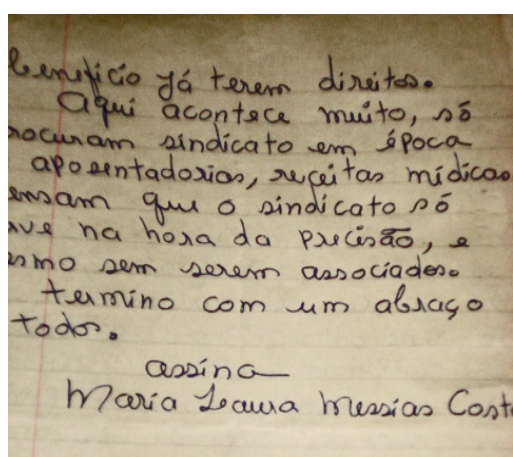 beneficio já terem direitos.
Aqui acontece muito, só
rocuram sindicato em época
aposentadorias, receitas médicas
ensam que o sindicato só
rve na hora da precisão, e
esmo sem serem associados.
termino com um abraço
todos.
assina
Maria Laura Messias Cost